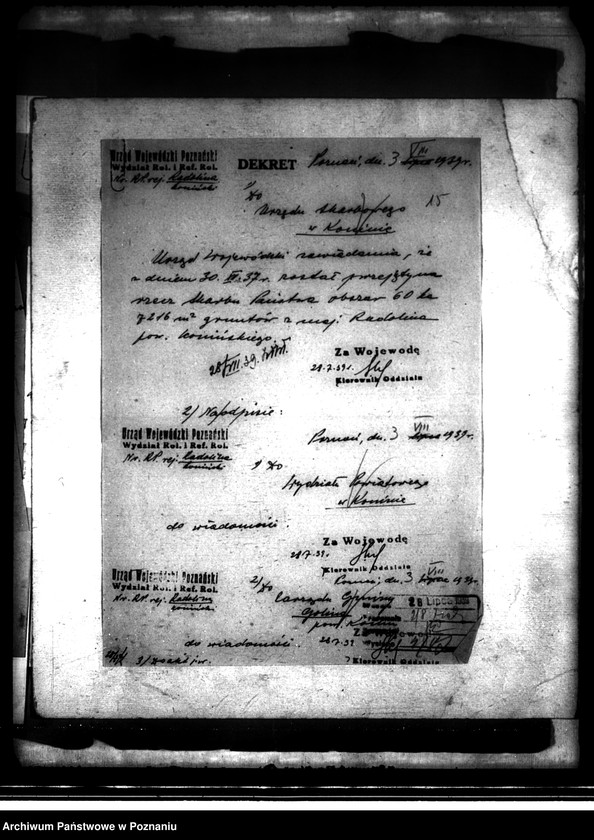 Urząd Wojewódzki Poznański
Wydział Rol. i Ref. Rol.
Nr. RP. rej. Radolina
koniński
DEKRET
Poznań, dn. 3 VIII lipca 1939 r.
1/ Do
Urzędu Skarbowego
w Koninie
15
Urząd Wojewódzki zawiadamia, że
z dniem 30. 37 r. został przejęty na
rzecz Skarbu Państwa obszar 60 ha
7216 m² gruntów z maj. Radolina
pow. konińskiego.
28/VII. 39.
Za Wojewodę
29.7.39 r.
Kierownik Oddziału
2/ Na odpisie:
Urząd Wojewódzki Poznański
Wydział Rol. i Ref. Rol.
Nr. RP. rej. Radolina
koniński
Poznań, dn. 3 VIII lipca 1939 r.
1/ Do
Wydziału Powiatowego
w Koninie
do wiadomości.
Za Wojewodę
29.7.39.
Kierownik Oddziału
Urząd Wojewódzki Poznański
Wydział Rol. i Ref. Rol.
Nr. RP. rej. Radolina
koniński
Poznań, dn. 3 VIII lipca 1939 r.
2/ Do
Zarządu Gminy
Golina
pow. Konin
28 LIPCA 1939
do wiadomości.
Za Wojewodę
29.7.39
Kierownik Oddziału
3/
Archiwum Państwowe w Poznaniu